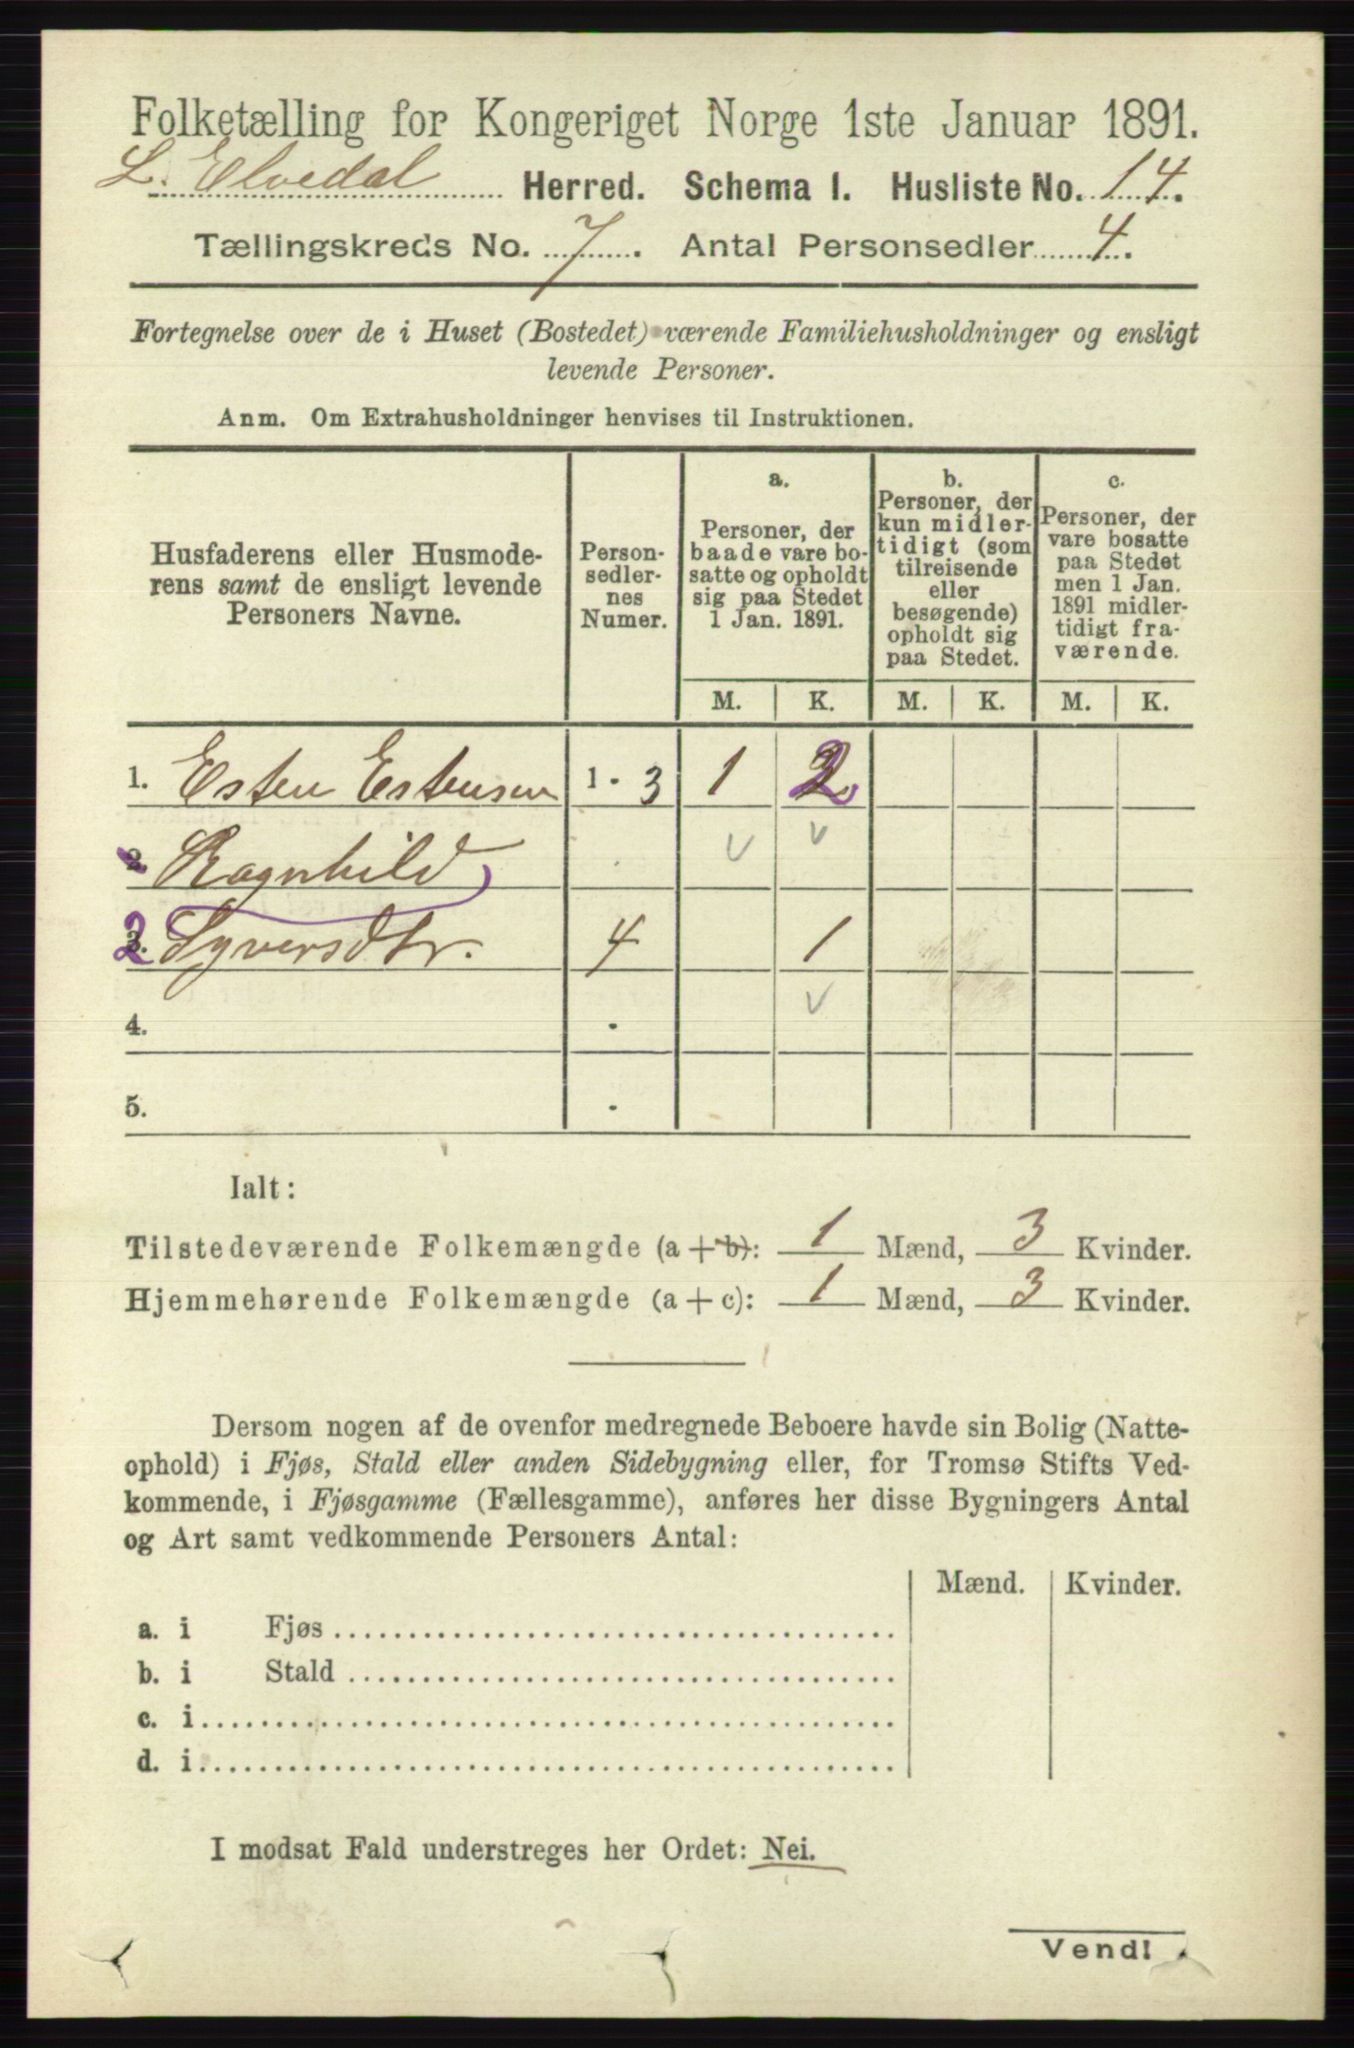 Folketælling for Kongeriget Norge 1ste Januar 1891.
L. Elvedal Herred. Schema I. Husliste No. 14.
Tællingskreds No. 7. Antal Personsedler 4.
Fortegnelse over de i Huset (Bostedet) værende Familiehusholdninger og ensligt
levende Personer.
Anm. Om Extrahusholdninger henvises til Instruktionen.
Husfaderens eller Husmode-
rens samt de ensligt levende
Personers Navne.
Person-
sedler-
nes
Numer.
a.
Personer, der
baade vare bo-
satte og opholdt
sig paa Stedet
1 Jan. 1891.
b.
Personer, der
kun midler-
tidigt (som
tilreisende
eller
besøgende)
opholdt sig
paa Stedet.
c.
Personer, der
vare bosatte
paa Stedet
men 1 Jan.
1891 midler-
tidigt fra-
værende.
M. K. M. K. M. K.
1. Esten Estensen 1 - 3 1 2
2. Ragnhild
2 3. Syversdtr. 4 1
4.
5.
Ialt:
Tilstedeværende Folkemængde (a + b): 1 Mænd, 3 Kvinder.
Hjemmehørende Folkemængde (a + c): 1 Mænd, 3 Kvinder.
Dersom nogen af de ovenfor medregnede Beboere havde sin Bolig (Natte-
ophold) i Fjøs, Stald eller anden Sidebygning eller, for Tromsø Stifts Ved-
kommende, i Fjøsgamme (Fællesgamme), anføres her disse Bygningers Antal
og Art samt vedkommende Personers Antal:
Mænd. Kvinder.
a. i Fjøs
b. i Stald
c. i
d. i
I modsat Fald understreges her Ordet: Nei.
Vend!